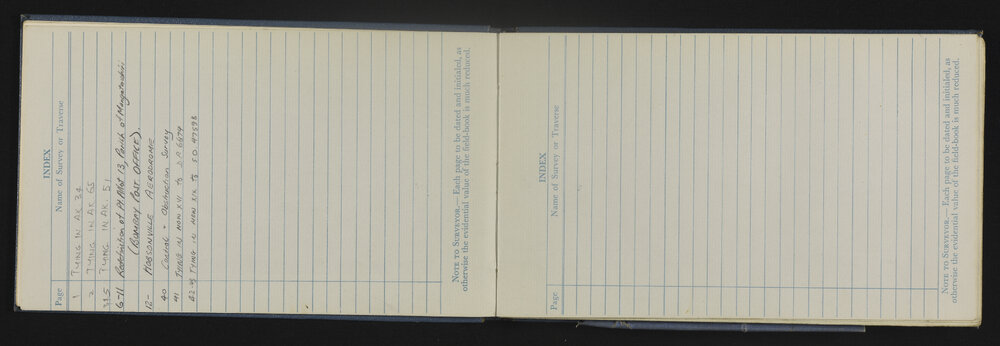 INDEX
Page Name of Survey or Traverse
1 TYING IN AK 34
2 TYING IN AK 65
3&5 TYING IN AK 51
6-11 Redefinition of Pt Allot 13, Parish of
(BOMBAY POST OFFICE).
12- HOBSONVILLE AERODROME
40 Control & Obstruction Survey
41 TYING IN MON XVI to D.P. 6679
42 TYING IN MON XIX to SO 47598
NOTE TO SURVEYOR.— Each page to be dated and initialed, as
otherwise the evidential value of the field-book is much reduced.
INDEX
Page Name of Survey or Traverse
NOTE TO SURVEYOR.— Each page to be dated and initialed, as
otherwise the evidential value of the field-book is much reduced.